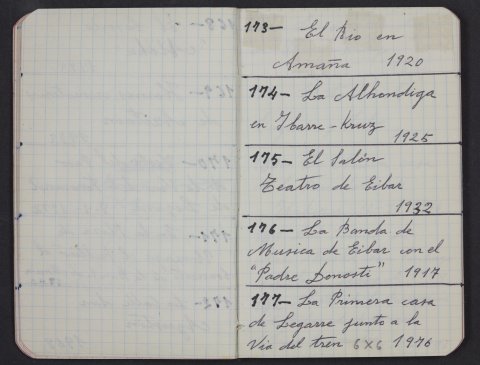 173- El Rio en
Amaña 1920
174- La Alhondiga
en Ibarre-Kruz
1925
175- El Salón
Teatro de Eibar
1932
176- La Banda de
Musica de Eibar con el
"Padre Donosti" 1917
177- La Primera casa
de Legarre junto a la
Via del tren 6x6 1976